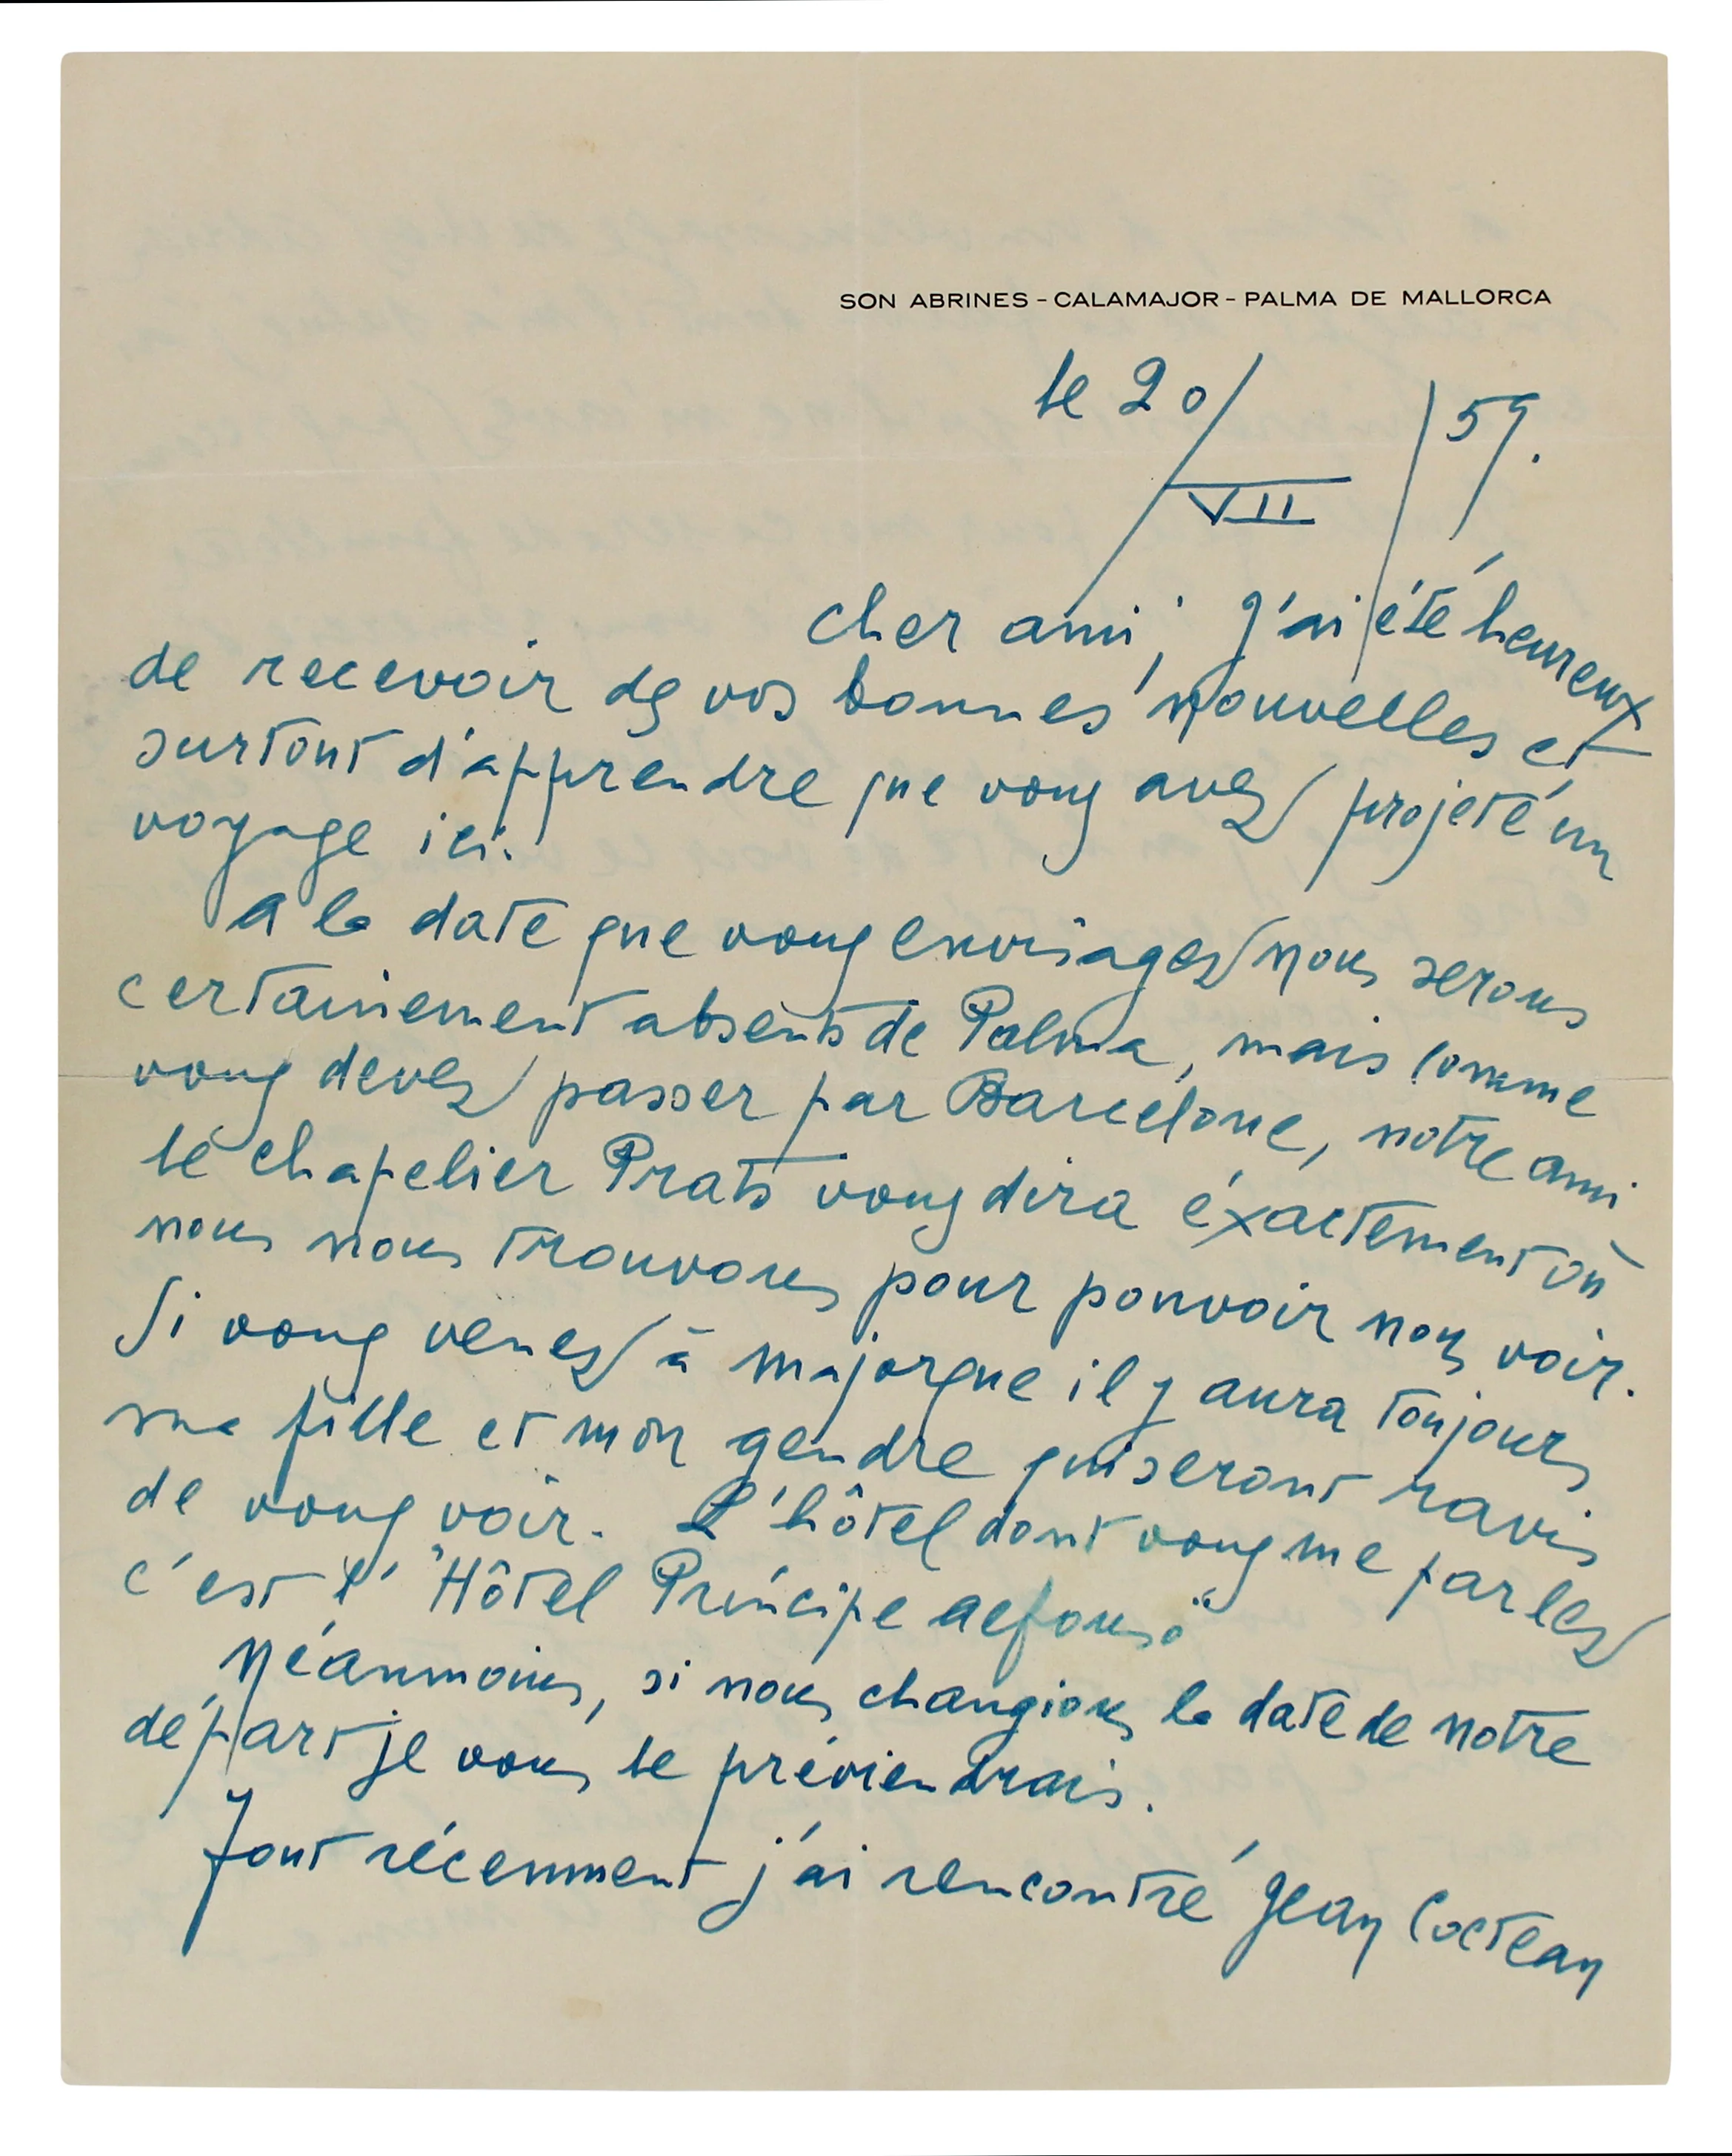 SON ABRINES - CALAMAJOR - PALMA DE MALLORCA
le 20/VII/59.
cher ami, j'ai été heureux
de recevoir de vos bonnes nouvelles et
surtout d'apprendre que vous avez projeté un
voyage ici.
A la date que vous envisagez nous serons
certainement absents de Palma, mais comme
vous devez passer par Barcelone, notre ami
le chapelier Prats vous dira éxactement où
nous nous trouvons pour pouvoir nous voir.
Si vous venez à majorque il y aura toujours
ma fille et mon gendre qui seront ravis
de vous voir. L'hôtel dont vous me parlez
c'est l' "Hôtel Príncipe Alfonso"
Néanmoins, si nous changions la date de notre
départ je vous le préviendrais.
Tout récemment j'ai rencontré Jean Cocteau